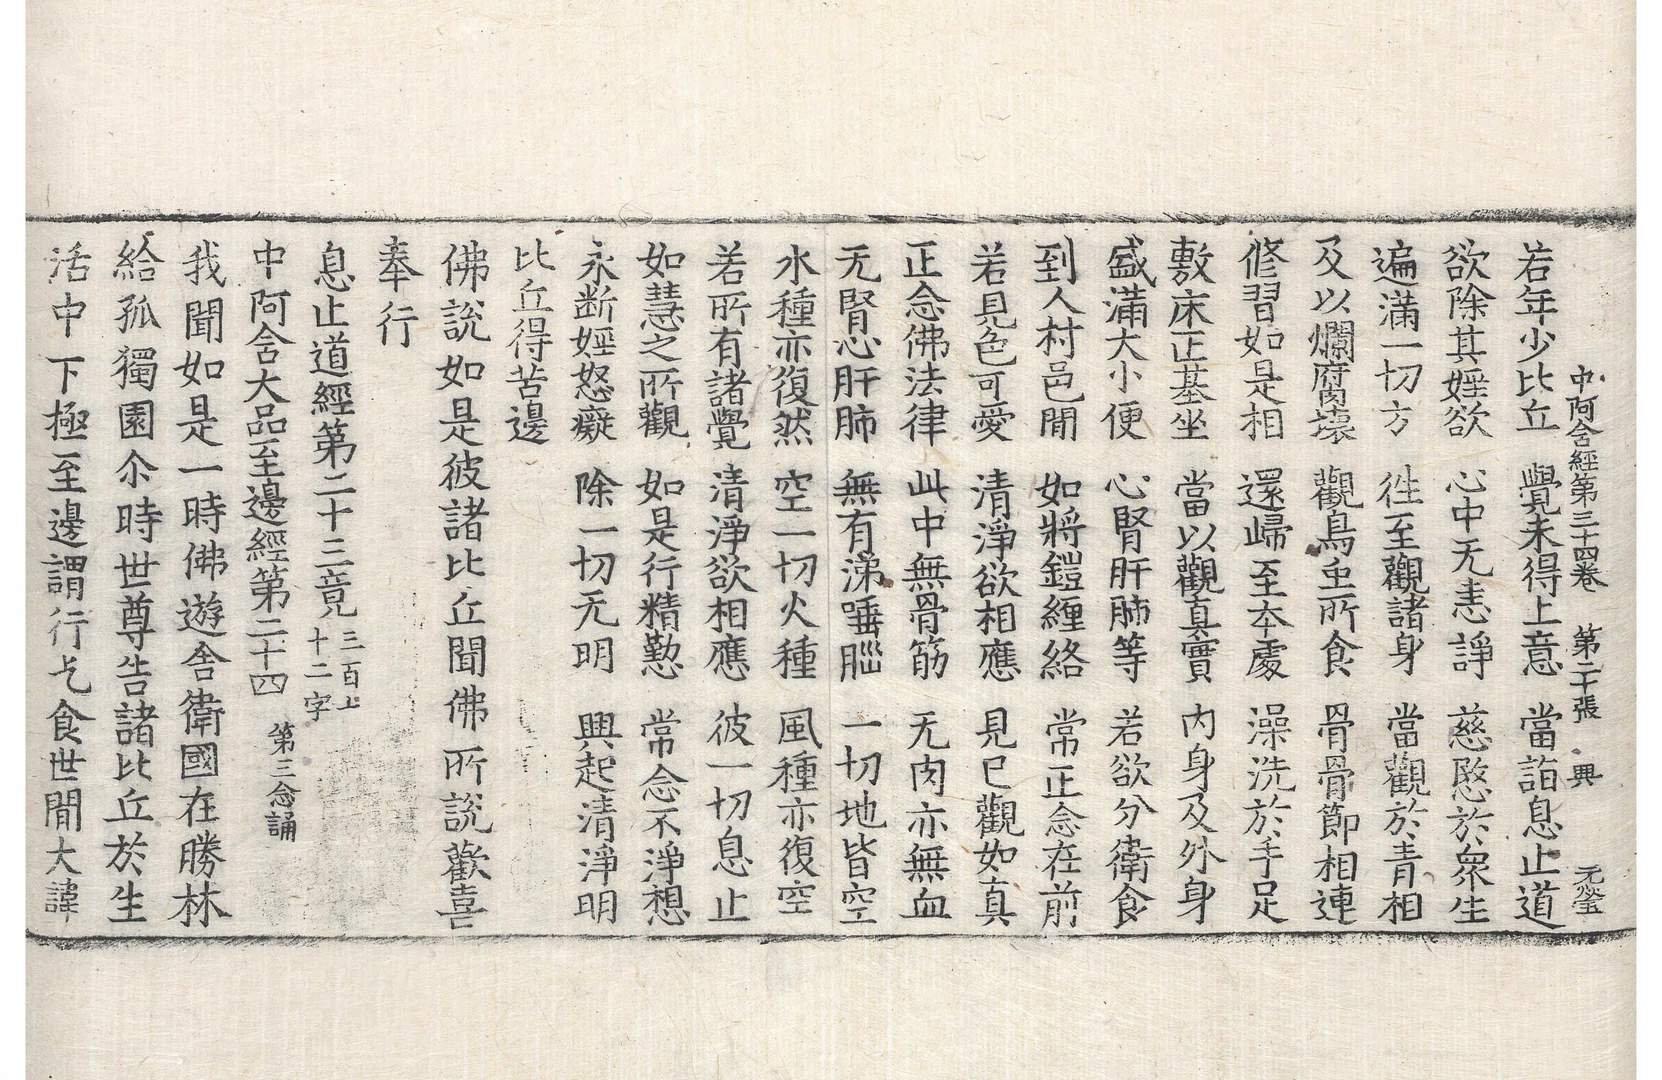 中阿含經第三十四卷 第二十張 興 元瑩
若年少比丘 覺未得上意 當詣息止道
欲除其婬欲 心中无恚諍 慈愍於衆生
遍滿一切方 徃至觀諸身 當觀於青相
及以爛腐壞 觀鳥虫所食 骨骨節相連
修習如是相 還歸至夲處 澡洗於手足
敷床正基坐 當以觀真實 內身及外身
盛滿大小便 心腎肝肺等 若欲分衛食
到人村邑間 如將鎧纏絡 常正念在前
若見色可愛 清淨欲相應 見已觀如真
正念佛法律 此中無骨筋 无肉亦無血
无腎心肝肺 無有涕唾𦛁 一切地皆空
水種亦復然 空一切火種 風種亦復空
若所有諸覺 清淨欲相應 彼一切息止
如慧之所觀 如是行精懃 常念不淨想
永断婬怒癡 除一切无明 興起清淨明
比丘得苦邊
佛說如是彼諸比丘聞佛所說歡喜
奉行
息止道經第二十三竟 三百上十二字
中阿含大品至邊經第二十四 第三念誦
我聞如是一時佛遊舍衛國在勝林
給孤獨園尒時世尊告諸比丘於生
活中下極至邊謂行乞食世間大諱